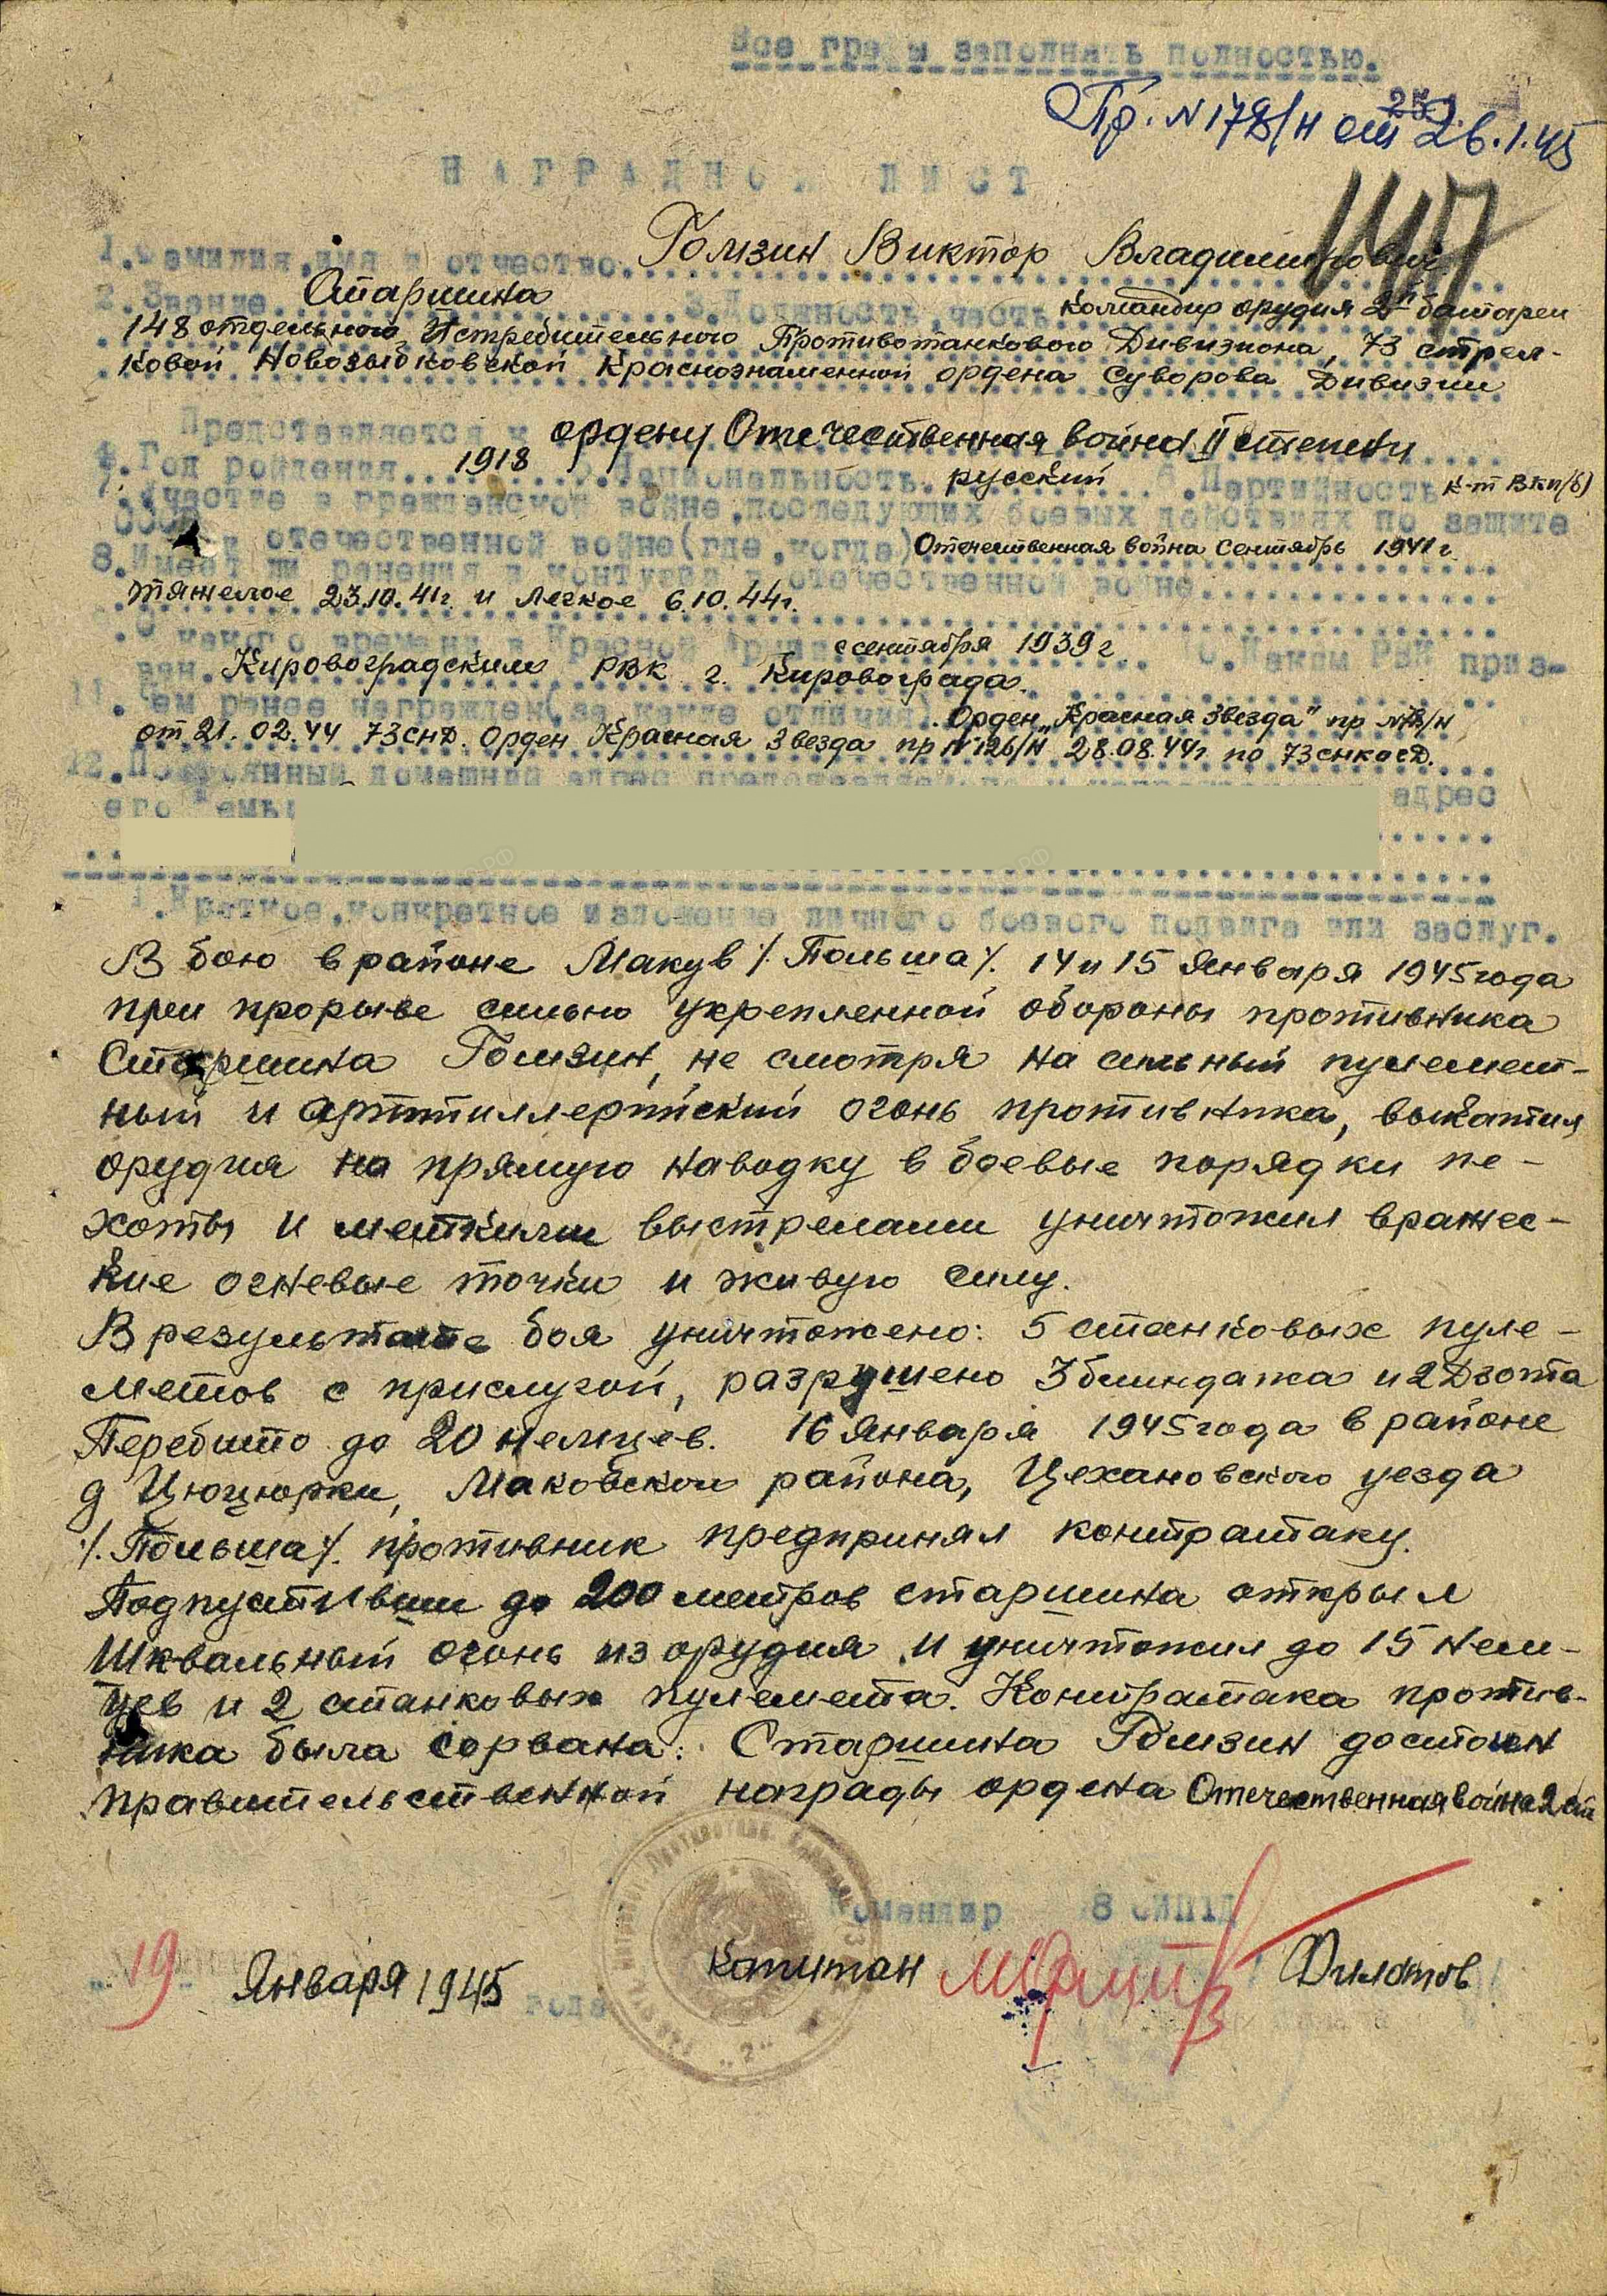 Все графы заполнять полностью.
252.
Пр. N 178/н от 26.1.45
НАГРАДНОЙ ЛИСТ
1. Фамилия, имя и отчество. Гомзин Виктор Владимирович
2. Звание Старшина 3. Должность, часть командир орудия 2й батареи
148 отдельного Истребительного Противотанкового Дивизиона, 73 стрел-
ковой Новозыбковской Краснознаменной ордена Суворова Дивизии
Представляется к ордену Отечественная война II степени
4. Год рождения 1918 5. Национальность. русский 6. Партийность к-т ВКП(б)
7. Участие в гражданской войне, последующих боевых действиях по защите
СССР и отечественной войне (где, когда) Отечественная война сентябрь 1941 г.
8. Имеет ли ранения и контузии в отечественной войне
тяжелое 23.10.41г. и легкое 6.10.44г.
9. С какого времени в Красной Армии с сентября 1939 г 10. Каким РВК приз-
ван. Кировоградским РВК г. Кировограда.
11. Чем ранее награжден (за какие отличия). Орден „Красная Звезда" пр
от 21.02.44 73 снд. Орден Красная Звезда пр N 126/н 28.08.44г по 73 снкосд.
12. Постоянный домашний адрес адрес
его семьи
1. Краткое, конкретное изложение личного боевого подвига или заслуг.
В бою в районе Макув /. Польша /. 14 и 15 Января 1945 года
при прорыве сильно укрепленной обороны противника
Старшина Гомзин, не смотря на сильный пулемет-
ный и арттиллерийский огонь противника, выкатил
орудия на прямую наводку в боевые порядки пе-
хоты и меткими выстрелами уничтожил вражес-
кие огневые точки и живую силу.
В результате боя уничтожено: 5 станковых пуле-
метов с прислугой, разрушено 3 блиндажа и 2 Дзота
Перебито до 20 немцев. 16 Января 1945 года в районе
д Цюцюрки, Маковского района, Цехановского уезда
/. Польша /. противник предпринял контратаку.
Подпустивши до 200 метров старшина открыл
шквальный огонь из орудия и уничтожил до 15 нем-
цев и 2 станковых пулемета. Контратака против-
ника была сорвана. Старшина Гомзин достоин
правительственной награды ордена Отечественная война 2 ст
Командир 8 ОИПТД
19 Января 1945 года
Капитан Филатов